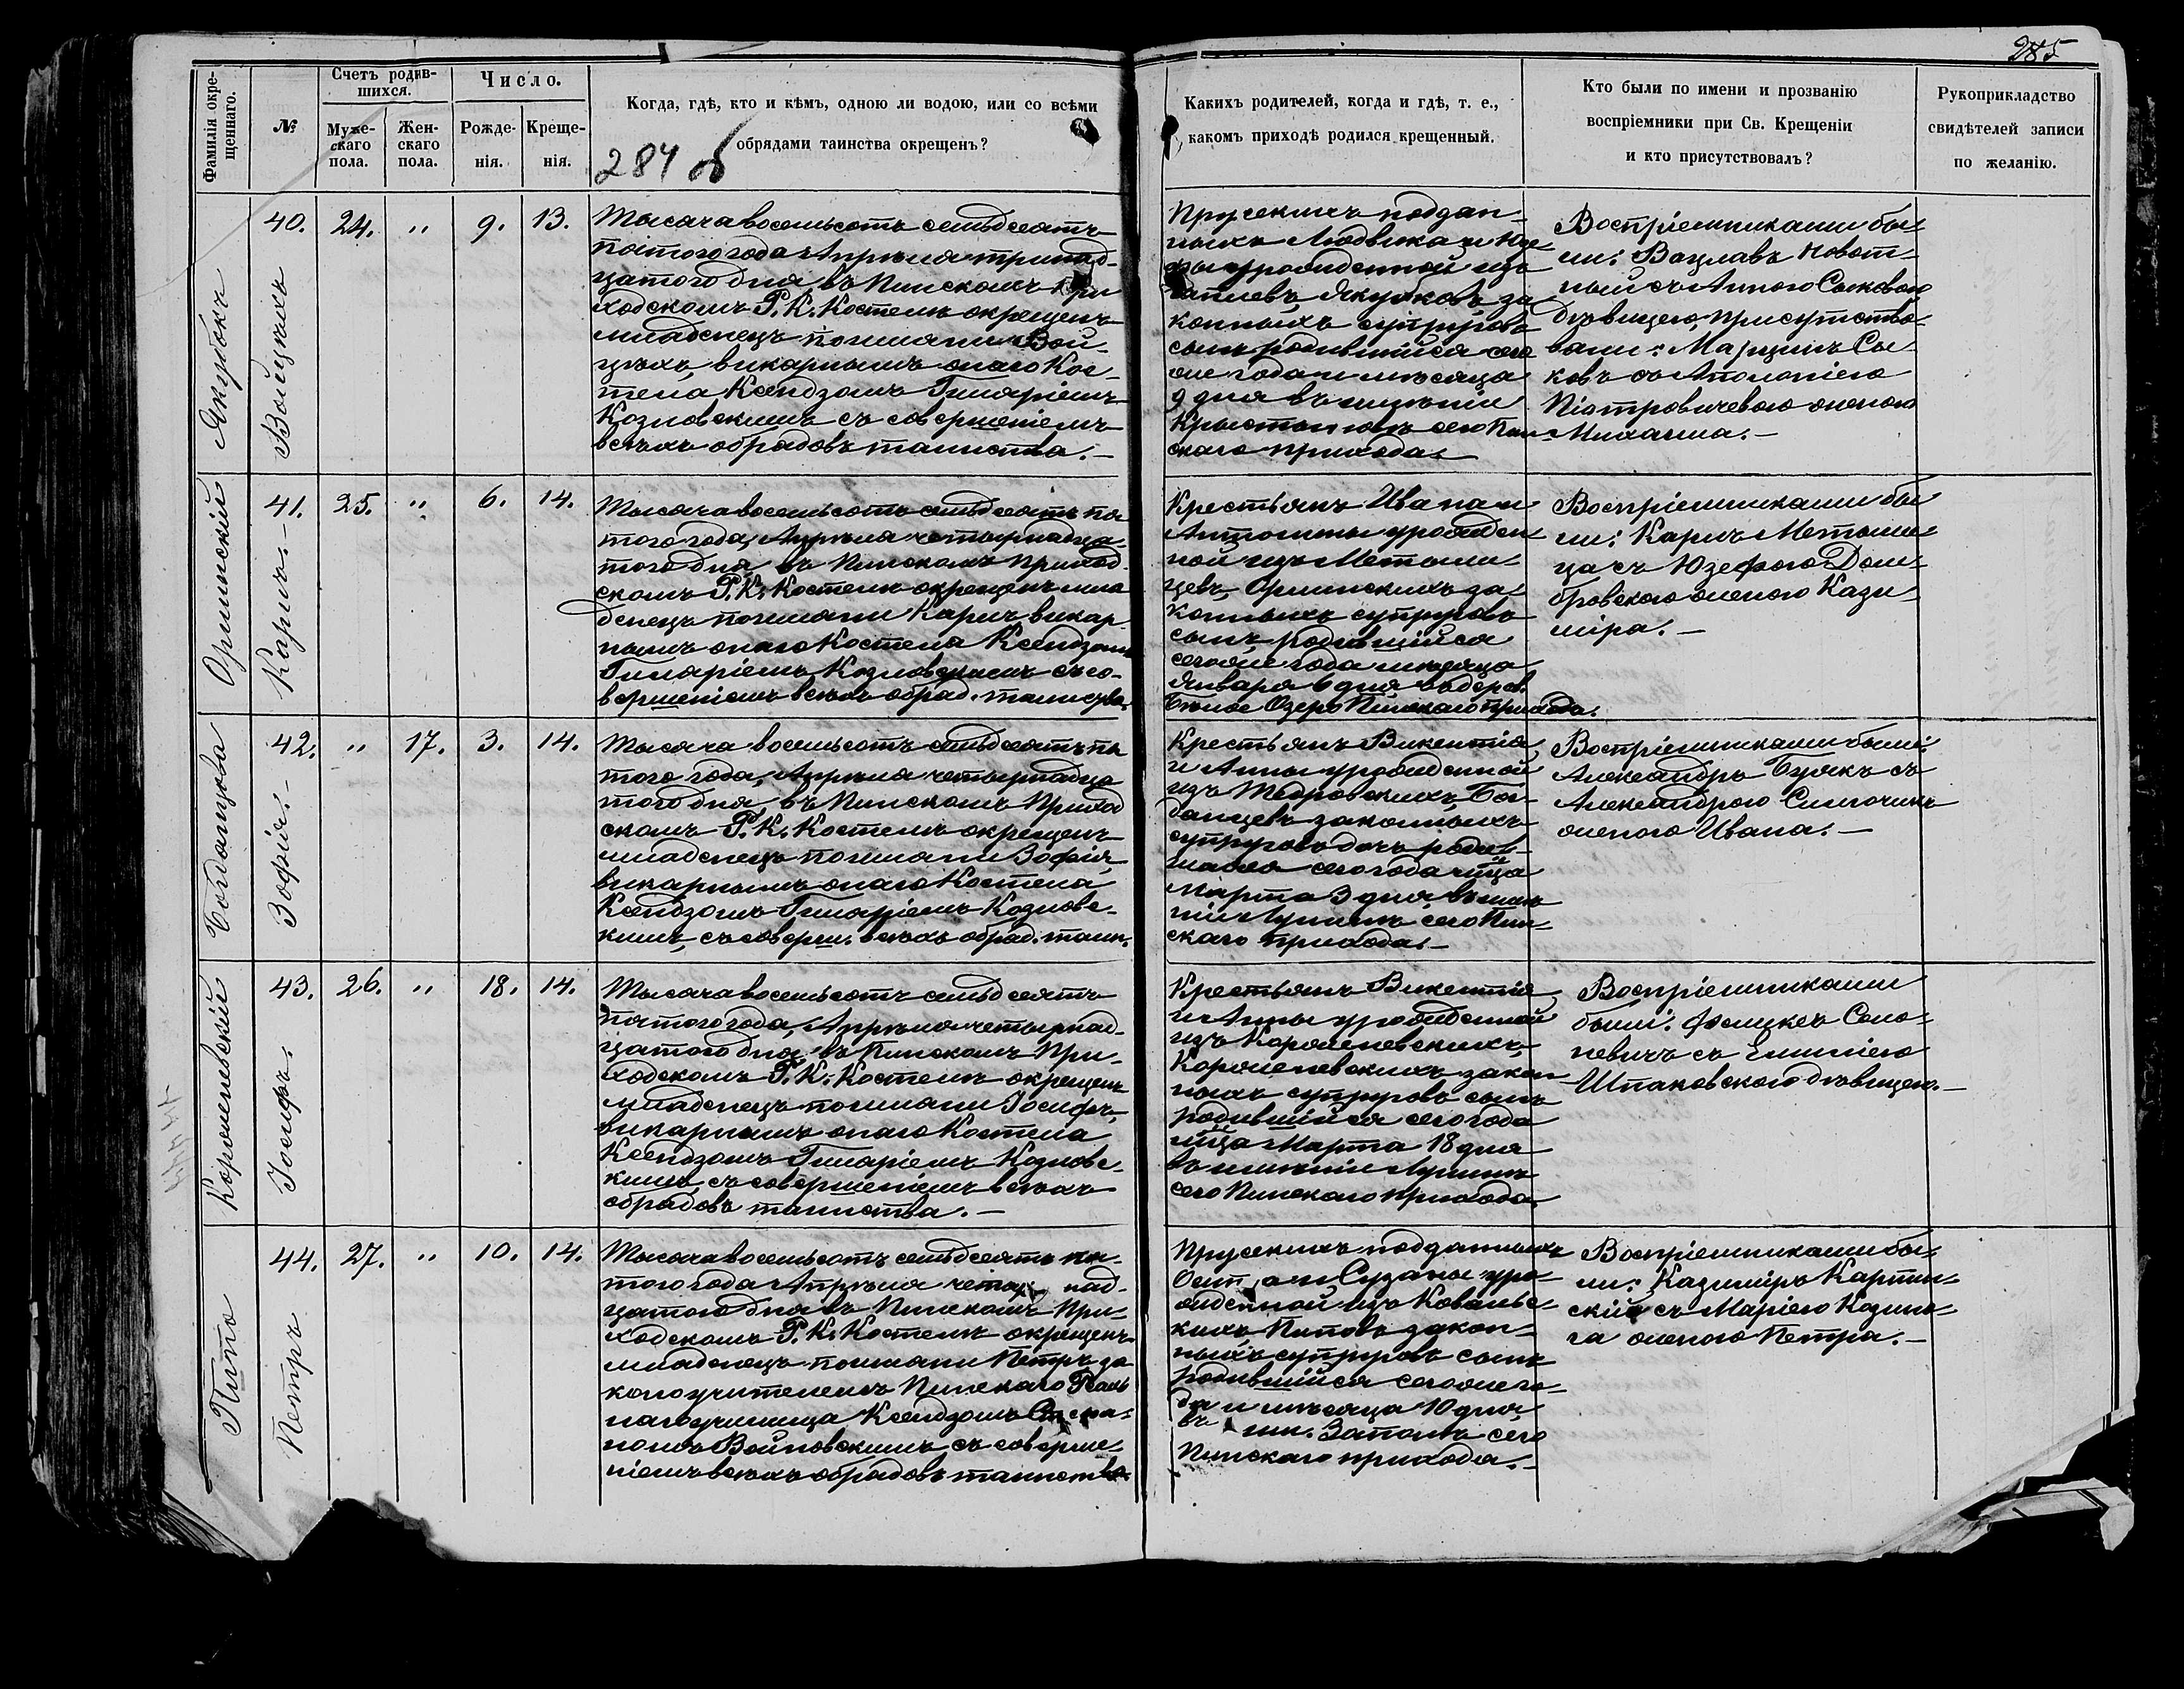 285
Фамилія окре-
щеннаго.
№
Счетъ родив-
шихся.
Муже-
скаго
пола.
Жен-
скаго
пола.
Число.
Рожде-
нія.
Креще-
нія.
Когда, гдѣ, кто и кѣмъ, одною ли водою, или со всѣми
обрядами таинства окрещенъ?
284 об
Какихъ родителей, когда и гдѣ, т. е.,
какомъ приходѣ родился крещенный.
Кто были по имени и прозванію
воспріемники при Св. Крещеніи
и кто присутствовалъ?
Рукоприкладство
свидѣтелей записи
по желанію.
Якубокъ
Войцѣхъ
40. 24. " 9. 13.
Тысяча восемьсотъ семьдесятъ
пятого года Апрѣля тринад-
цатого дня, въ Пинскомъ При
ходскомъ Р. К. Костелѣ окрещенъ
младенецъ поимяни Вой-
цѣхъ, викарнымъ онаго Кос-
тела Ксендзомъ Гиляріемъ
Козловскимъ съ совершеніемъ
всѣхъ обрядовъ таинства.-
Прусскихъ поддан-
ныхъ Людвика и Юзе
фы урожденной изъ
Якубковъ за
конныхъ супруговъ
сынъ родившійся сего
оне года и мѣсяца
9 дня въ имѣніи
сего Пин-
скаго прихода.-
Воспріемниками бы-
ли: Вацлавъ Новот-
ный съ Анною Сыковою
дѣвицею, присутство-
вали: Марцинъ Сы-
ковъ съ Аполоніею
Піотровичевою женою
Михаила.-
Орлинскій
Кароль.-
41. 25. " 6. 14.
Тысяча восемьсотъ семьдесятъ пя
того года, Апрѣля четырнадца-
того дня, въ Пинскомъ Приход-
скомъ Р. К. Костелѣ окрещенъ мла
денецъ поимяни Кароль викар
нымъ онаго Костела Ксендзомъ
Гиляріемъ Козловскимъ съ со-
вершеніемъ всѣхъ обряд. таинства.
Крестьянъ Ивана и
Антонины урожден
ной изъ Метели-
цевъ Орлинскихъ за-
конныхъ супруговъ
сынъ родившійся
сегоже года мѣсяца
Января 6 дня въ дерев.
Бѣлое Озеро Пинскаго прихода.
Воспріемниками бы
ли: Кароль Метели-
ца съ Юзефою Дом-
бровскою женою Кази-
міра.-
Богданцова
Зофія.-
42. " 17. 3. 14.
Тысяча восемьсотъ семьдесятъ пя
того года, Апрѣля четырнадца
того дня, въ Пинскомъ Приход
скомъ Р. К. Костелѣ окрещенъ
младенецъ поимяни Зофія,
викарнымъ онаго Костела
Ксендзомъ Гиляріемъ Козловс-
кимъ, съ соверш. всѣхъ обряд. таин.
Крестьянъ Викентія
и Анны урожденной
изъ Бог-
данцевъ законныхъ
супруговъ дочь родив-
шаяся сего года м-ца
Марта 3 дня, въ имѣ
ніи Лунинѣ сего Пин-
скаго прихода.-
Воспріемниками были:
Александръ Бурякъ съ
Александрою
женою Ивана.-
Короленевскій
Іосифъ.
43. 26. " 18. 14.
Тысяча восемьсотъ семьдесятъ
пятого года, Апрѣля четырнад-
цатого дня, въ Пинскомъ При-
ходскомъ Р. К. Костелѣ окрещенъ
младенецъ поимяни Іосифъ,
викарнымъ онаго Костела
Ксендзомъ Гиляріемъ Козловс-
кимъ, съ совершеніемъ всѣхъ
обрядовъ таинства.-
Крестьянъ Викентія
и Анны урожденной
изъ Короленевскихъ,
Короленевскихъ закон
ныхъ супруговъ сынъ
родившійся сего года
м-ца Марта 18 дня
въ имѣніи Лунинѣ
сего Пинскаго прихода
Воспріемниками
были: Феликсъ Сено-
певичъ съ Емиліею
Шпаковскою дѣвицею.-
Пита
Петръ
44. 27. " 10. 14.
Тысяча восемьсотъ семьдесятъ пя-
того года Апрѣля четыр над-
цатого дня въ Пинскомъ При-
ходскомъ Р. К. Костелѣ окрещенъ
младенецъ поимяни Петръ за
коноучителемъ Пинскаго Реаль
наго училища Ксендзомъ
Войновскимъ съ соверше-
ніемъ всѣхъ обрядовъ таинства.
Прусскихъ подданныхъ
и Сузаны уро-
жденной изъ Ковальс-
кихъ Питовъ закон-
ныхъ супруговъ сынъ
родившійся сегоже го-
да и мѣсяца 10 дня,
въ им. сего
Пинскаго прихода.-
Воспріемниками бы-
ли: Казиміръ Карпин-
скій съ Маріею
женою Петра.-